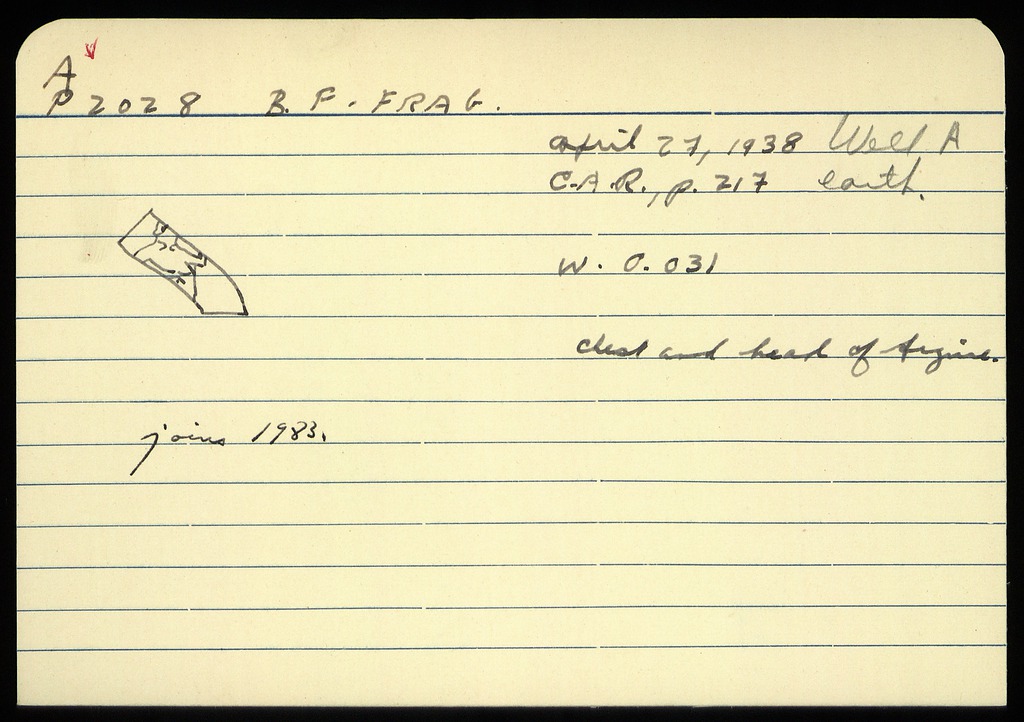 A
P 2028 B. F. FRAG.
April 27, 1938 Well A
C.A.R., p. 217 earth.
W. 0.031
chest and head of figure.
joins 1983.